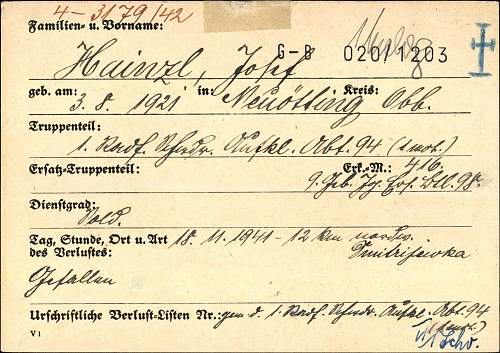 4-3/79/42
Familien- u. Vorname:
G-B 020/1203
Hainzl, Josef
geb. am: in: Kreis:
3. 8. 1921 Neuötting Obb.
Truppenteil:
1. Radf. Schwdr. Aufkl. Abt. 94 (t.mot.)
Ersatz-Truppenteil: Erk.-M.: 416.
9. Geb. Jg. Ers. Btl. 98.
Dienstgrad:
Sold.
Tag, Stunde, Ort u. Art 18. 11. 1941 - 12 km nordw.
des Verlustes: Dmitrijewka
Gefallen
Urschriftliche Verlust-Listen Nr.: gem. d. 1. Radf. Schwdr. Aufkl. Abt. 94
(t.mot.)
V 1